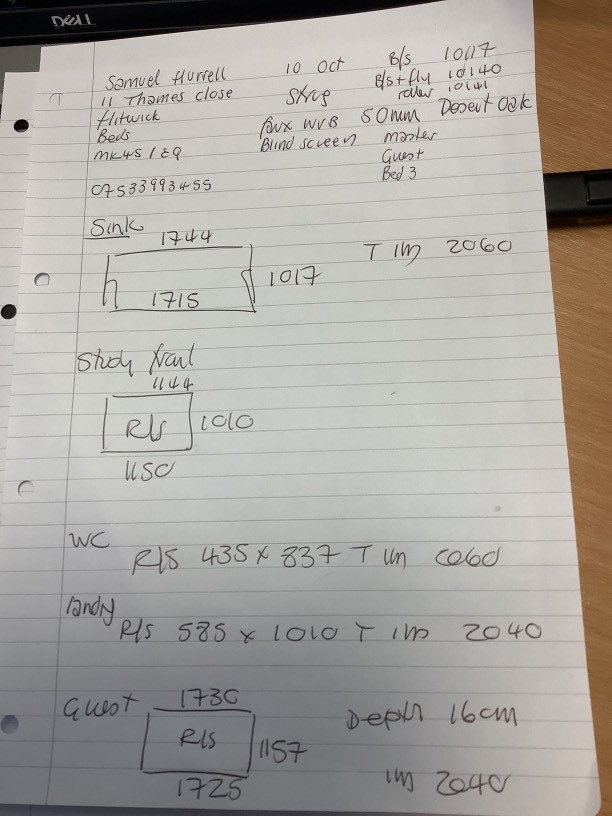 DELL
Samuel Hurrell 10 Oct B/s 10117
11 Thames close B/s + fly 10140
Flitwick roller 10141
Beds faux WVB 50mm Desert Oak
MK45 1EQ Blind screen master
Guest
07533993455 Bed 3
Sink
1744
1017 T 1m 2060
1715
Study
1144
R/s 1010
1150
WC
R/s 435 x 837 T 1m
R/s 585 x 1010 T 1m 2040
Guest 1730 Depth 16cm
R/s 1157
1725 1m 2040